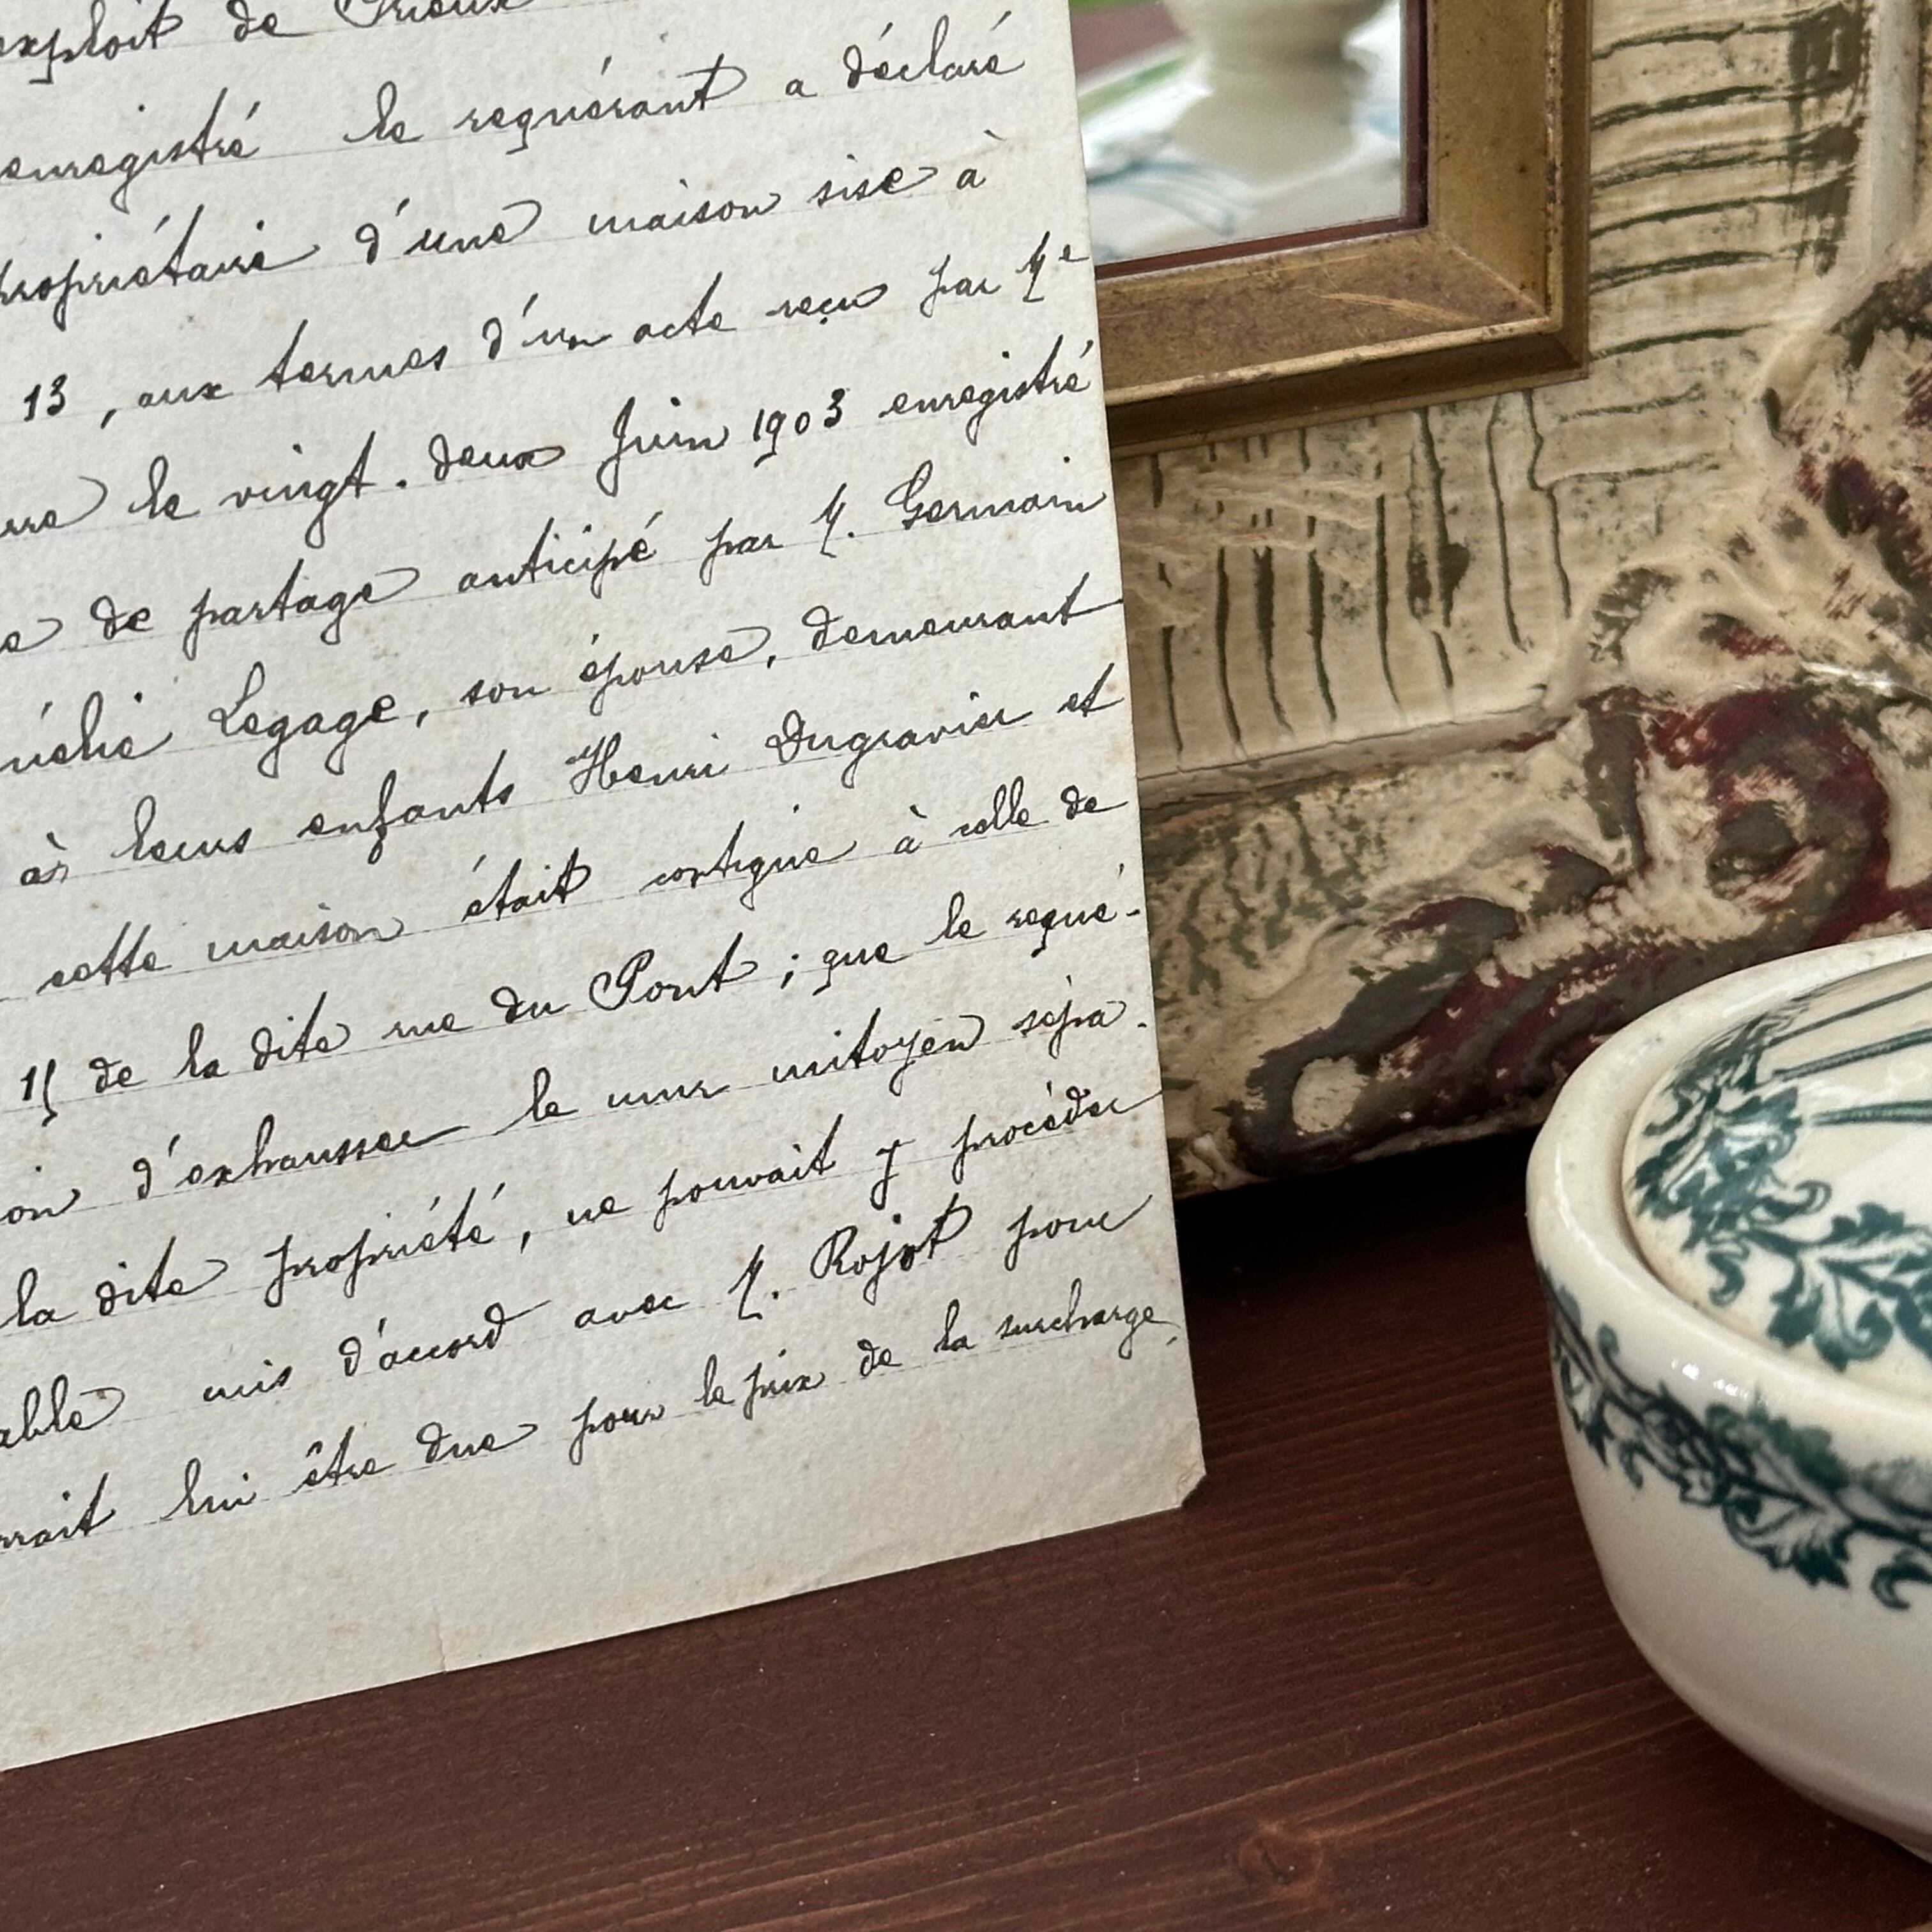 exploit de
enregistré le requérant a déclaré
propriétaire d'une maison sise à
13, aux termes d'un acte reçu par Me
le vingt-deux Juin 1903 enregistré
de partage anticipé par M. Germain
Legage, son épouse, demeurant
à leurs enfants Henri Dugravier et
cette maison était contigue à celle de
15 de la dite rue du Pont ; que le requé-
d'exhausser le mur mitoyen sépa-
la dite propriété, ne pouvait y procéder
mis d'accord avec M. Rojot pour
lui être due pour le prix de la surcharge,